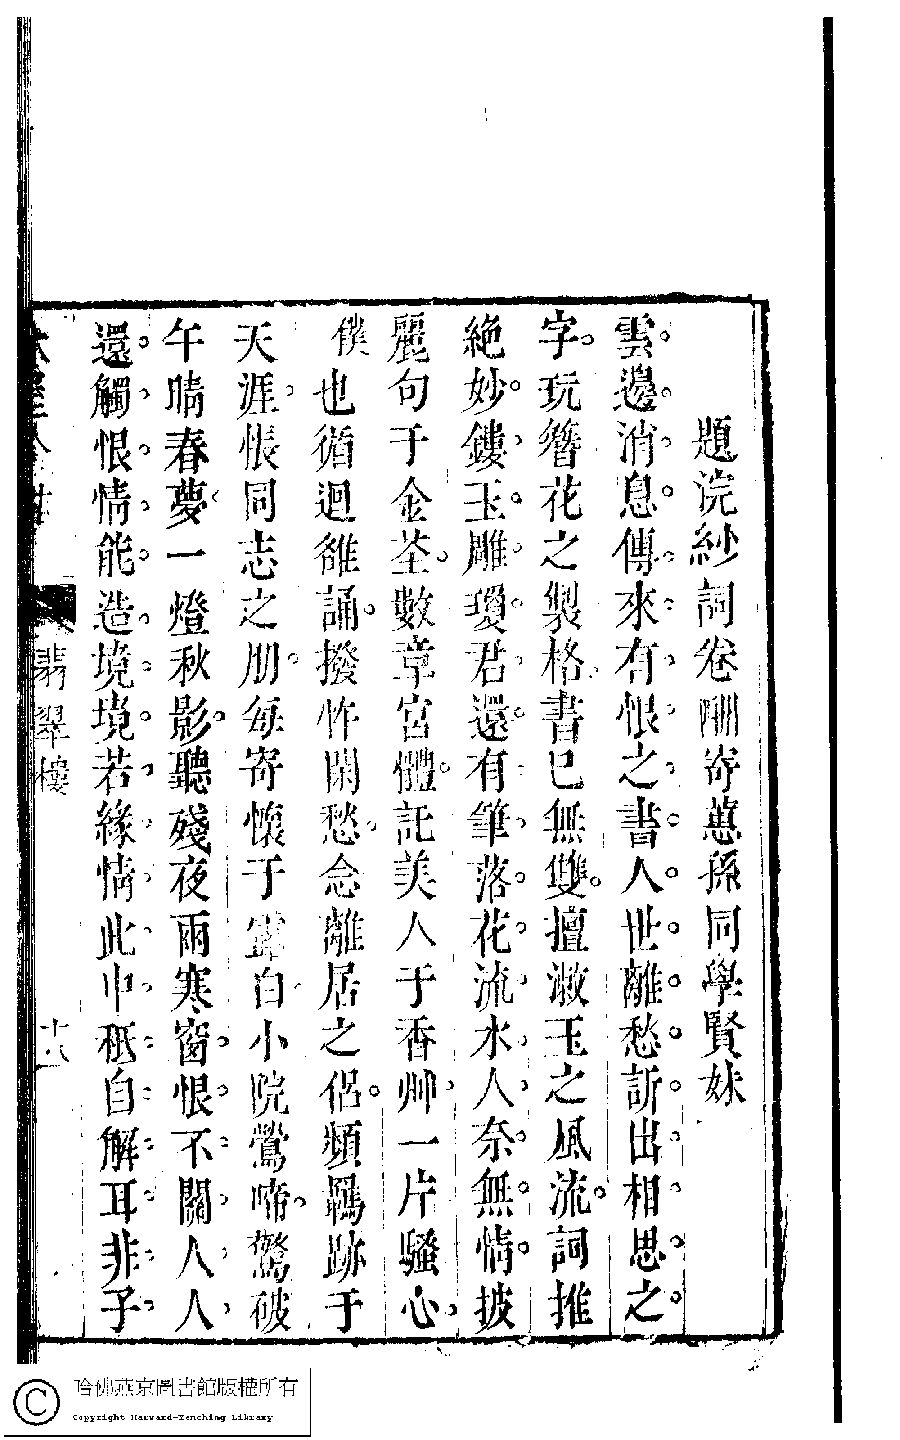 題浣紗詞卷酬寄蕙孫同學賢妹
雲邊消息傳來有恨之書人世離愁訴出相思之
字玩簪花之製格書已無雙擅漱玉之風流詞推
絕妙鏤玉雕瓊君還有筆落花流水人奈無情披
麗句于金荃數章宮體託美人于香艸一片騷心
僕也循迴雒誦撥怍閑愁念離居之侶頻羈跡于
天涯悵同志之朋每寄懷于露白小院鶯啼驚破
午晴春夢一燈秋影聽殘夜雨寒窗恨不關人人
還觸恨情能造境境若緣情此中秪自解耳非子
翡翠樓
十八
哈佛燕京圖書館版權所有
Copyright Harvard-Yenching Library